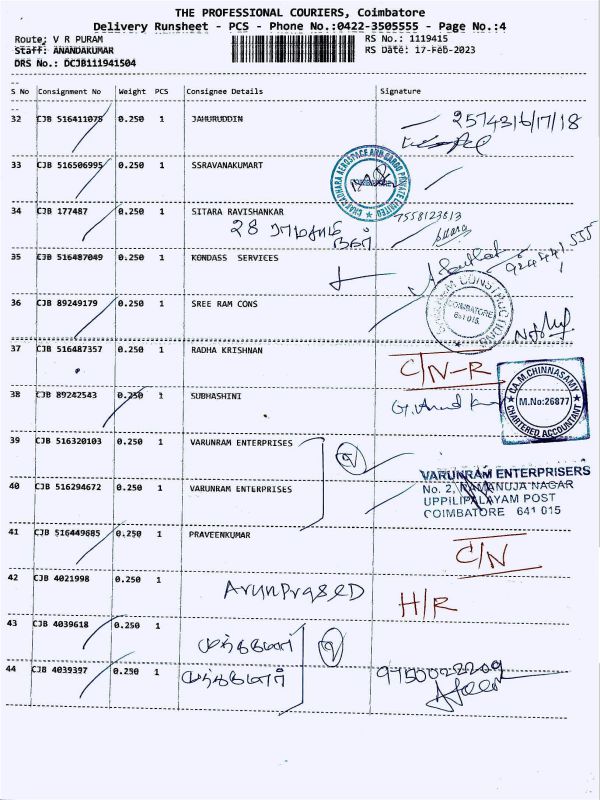 THE PROFESSIONAL COURIERS, Coimbatore
Delivery Runsheet - PCS - Phone No.:0422-3505555 - Page No.:4
Route: V R PURAM
RS No.: 1119415
Staff: ANANDAKUMAR
RS Date: 17-Feb-2023
DRS No.: DCJB111941504
S No Consignment No Weight PCS Consignee Details Signature
32 CJB 516411078 0.250 1 JAHURUDDIN
2574316/17/18
33 CJB 516506995 0.250 1 SSRAVANAKUMART
CHAKRADHARA AEROSPACE AND CARGO PRIVATE LIMITED
COIMBATORE
34 CJB 177487 0.250 1 SITARA RAVISHANKAR
7558123613
28
35 CJB 516487049 0.250 1 KONDASS SERVICES
36 CJB 89249179 0.250 1 SREE RAM CONS
COIMBATORE
641 015.
37 CJB 516487357 0.250 1 RADHA KRISHNAN
C/N-R
38 CJB 89242543 0.250 1 SUBHASHINI
J.A.M.CHINNASAMY
M.No:26877
CHARTERED ACCOUNTANT
39 CJB 516320103 0.250 1 VARUNRAM ENTERPRISES
VARUNRAM ENTERPRISERS
No. 2, RAMANUJA NAGAR
40 CJB 516294672 0.250 1 VARUNRAM ENTERPRISES
UPPILIPALAYAM POST
COIMBATORE 641 015
41 CJB 516449685 0.250 1 PRAVEENKUMAR
C/N
42 CJB 4021998 0.250 1
ArunPrased
H/R
43 CJB 4039618 0.250 1
44 CJB 4039397 0.250 1
9750022209